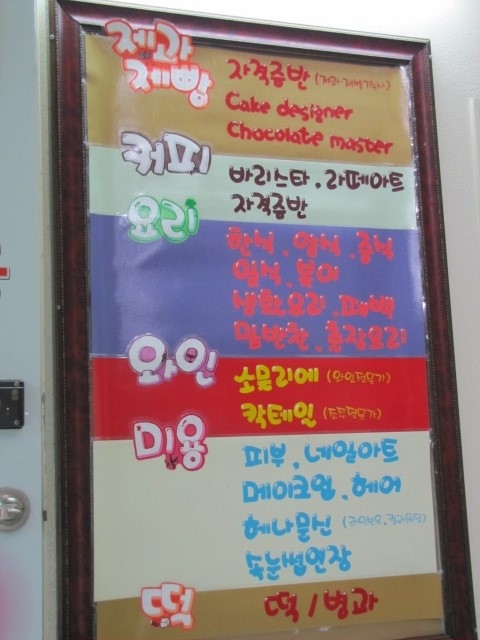 제과
제빵
자격증반 (제과·제빵기능사)
Cake designer
Chocolate master
커피
바리스타 . 라떼아트
자격증반
요리
한식 . 양식 . 중식
일식 . 복어
생활요리 . 폐백
밑반찬 . 출장요리
와인
소믈리에 (와인전문가)
칵테일
미용
피부 . 네일아트
메이크업 . 헤어
헤나문신
속눈썹연장
떡
떡 / 병과